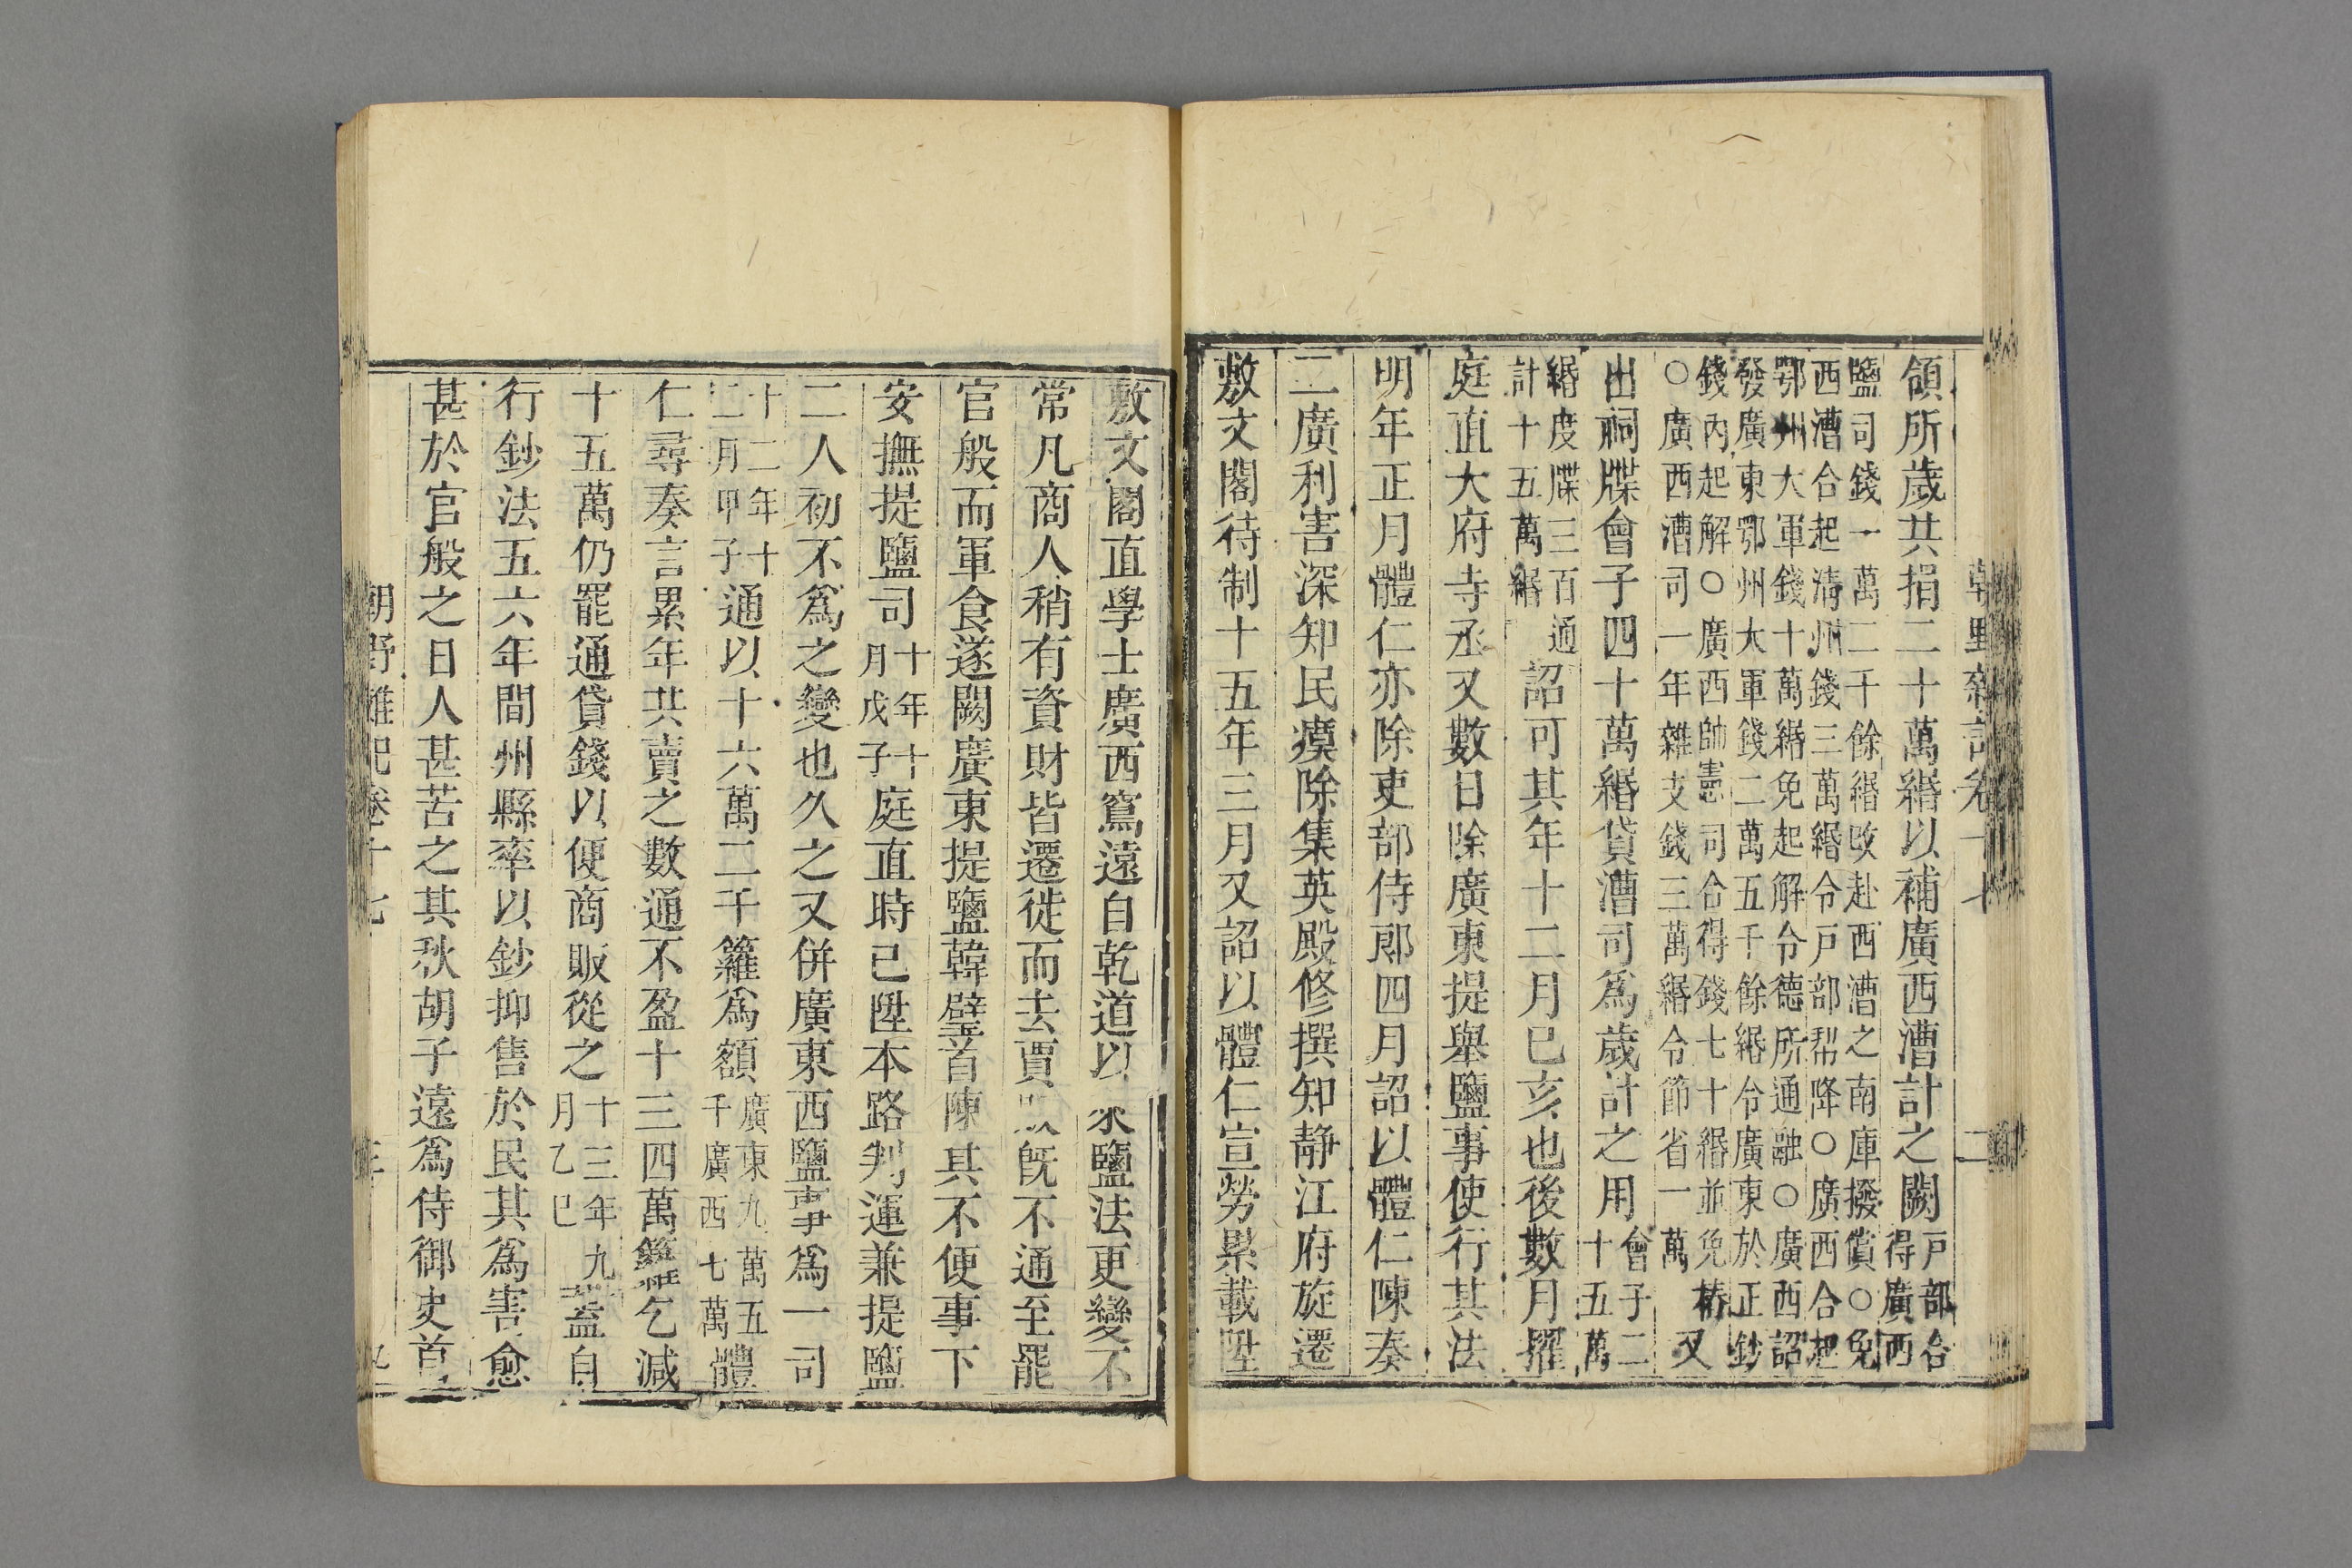 朝野雜記卷十七 二
領所歲共捐二十萬緡以補廣西漕計之闕戸部合
得廣西
鹽司錢一萬二千餘緡改赴西漕之南庫撥償○免
西漕合起淸州錢三萬緡令戸部帮降○廣西合起
鄂州大軍錢十萬緡免起解令德所通融○廣西詔
發廣東鄂州大軍錢二萬五千餘緡令廣東於正鈔
錢內起解○廣西帥憲司合得錢七十緡並免樁
○廣西漕司一年雜支錢三萬緡令節省一萬 又
出祠牒會子四十萬緡貸漕司爲歲計之用會子二
十五萬
緡度牒三百通
計十五萬緡 詔可其年十二月已亥也後數月擢
庭直大府寺丞又數日除廣東提舉鹽事使行其法
明年正月體仁亦除吏部侍郎四月詔以體仁陳奏
二廣利害深知民瘼除集英殿修撰知靜江府旋遷
敷文閣待制十五年三月又詔以體仁宣勞累載陞
敷文閣直學士廣西窵遠自乾道以來鹽法更變不
常凡商人稍有資財皆遷徙而去賈既不通至罷
官般而軍食遂闕廣東提鹽韓璧首陳其不便事下
安撫提鹽司十年十
月戊子庭直時已陞本路判運兼提鹽
二人初不爲之變也久之又併廣東西鹽事爲一司
十二年十
二月甲子通以十六萬二千籮爲額廣東九萬五
千廣西七萬體
仁尋奏言累年共賣之數通不盈十三四萬籮乞減
十五萬仍罷通貸錢以便商販從之十三年九
月乙巳蓋自
行鈔法五六年間州縣率以鈔抑售於民其爲害愈
甚於官般之日人甚苦之其秋胡子遠爲侍御史首
朝野雜記卷十七